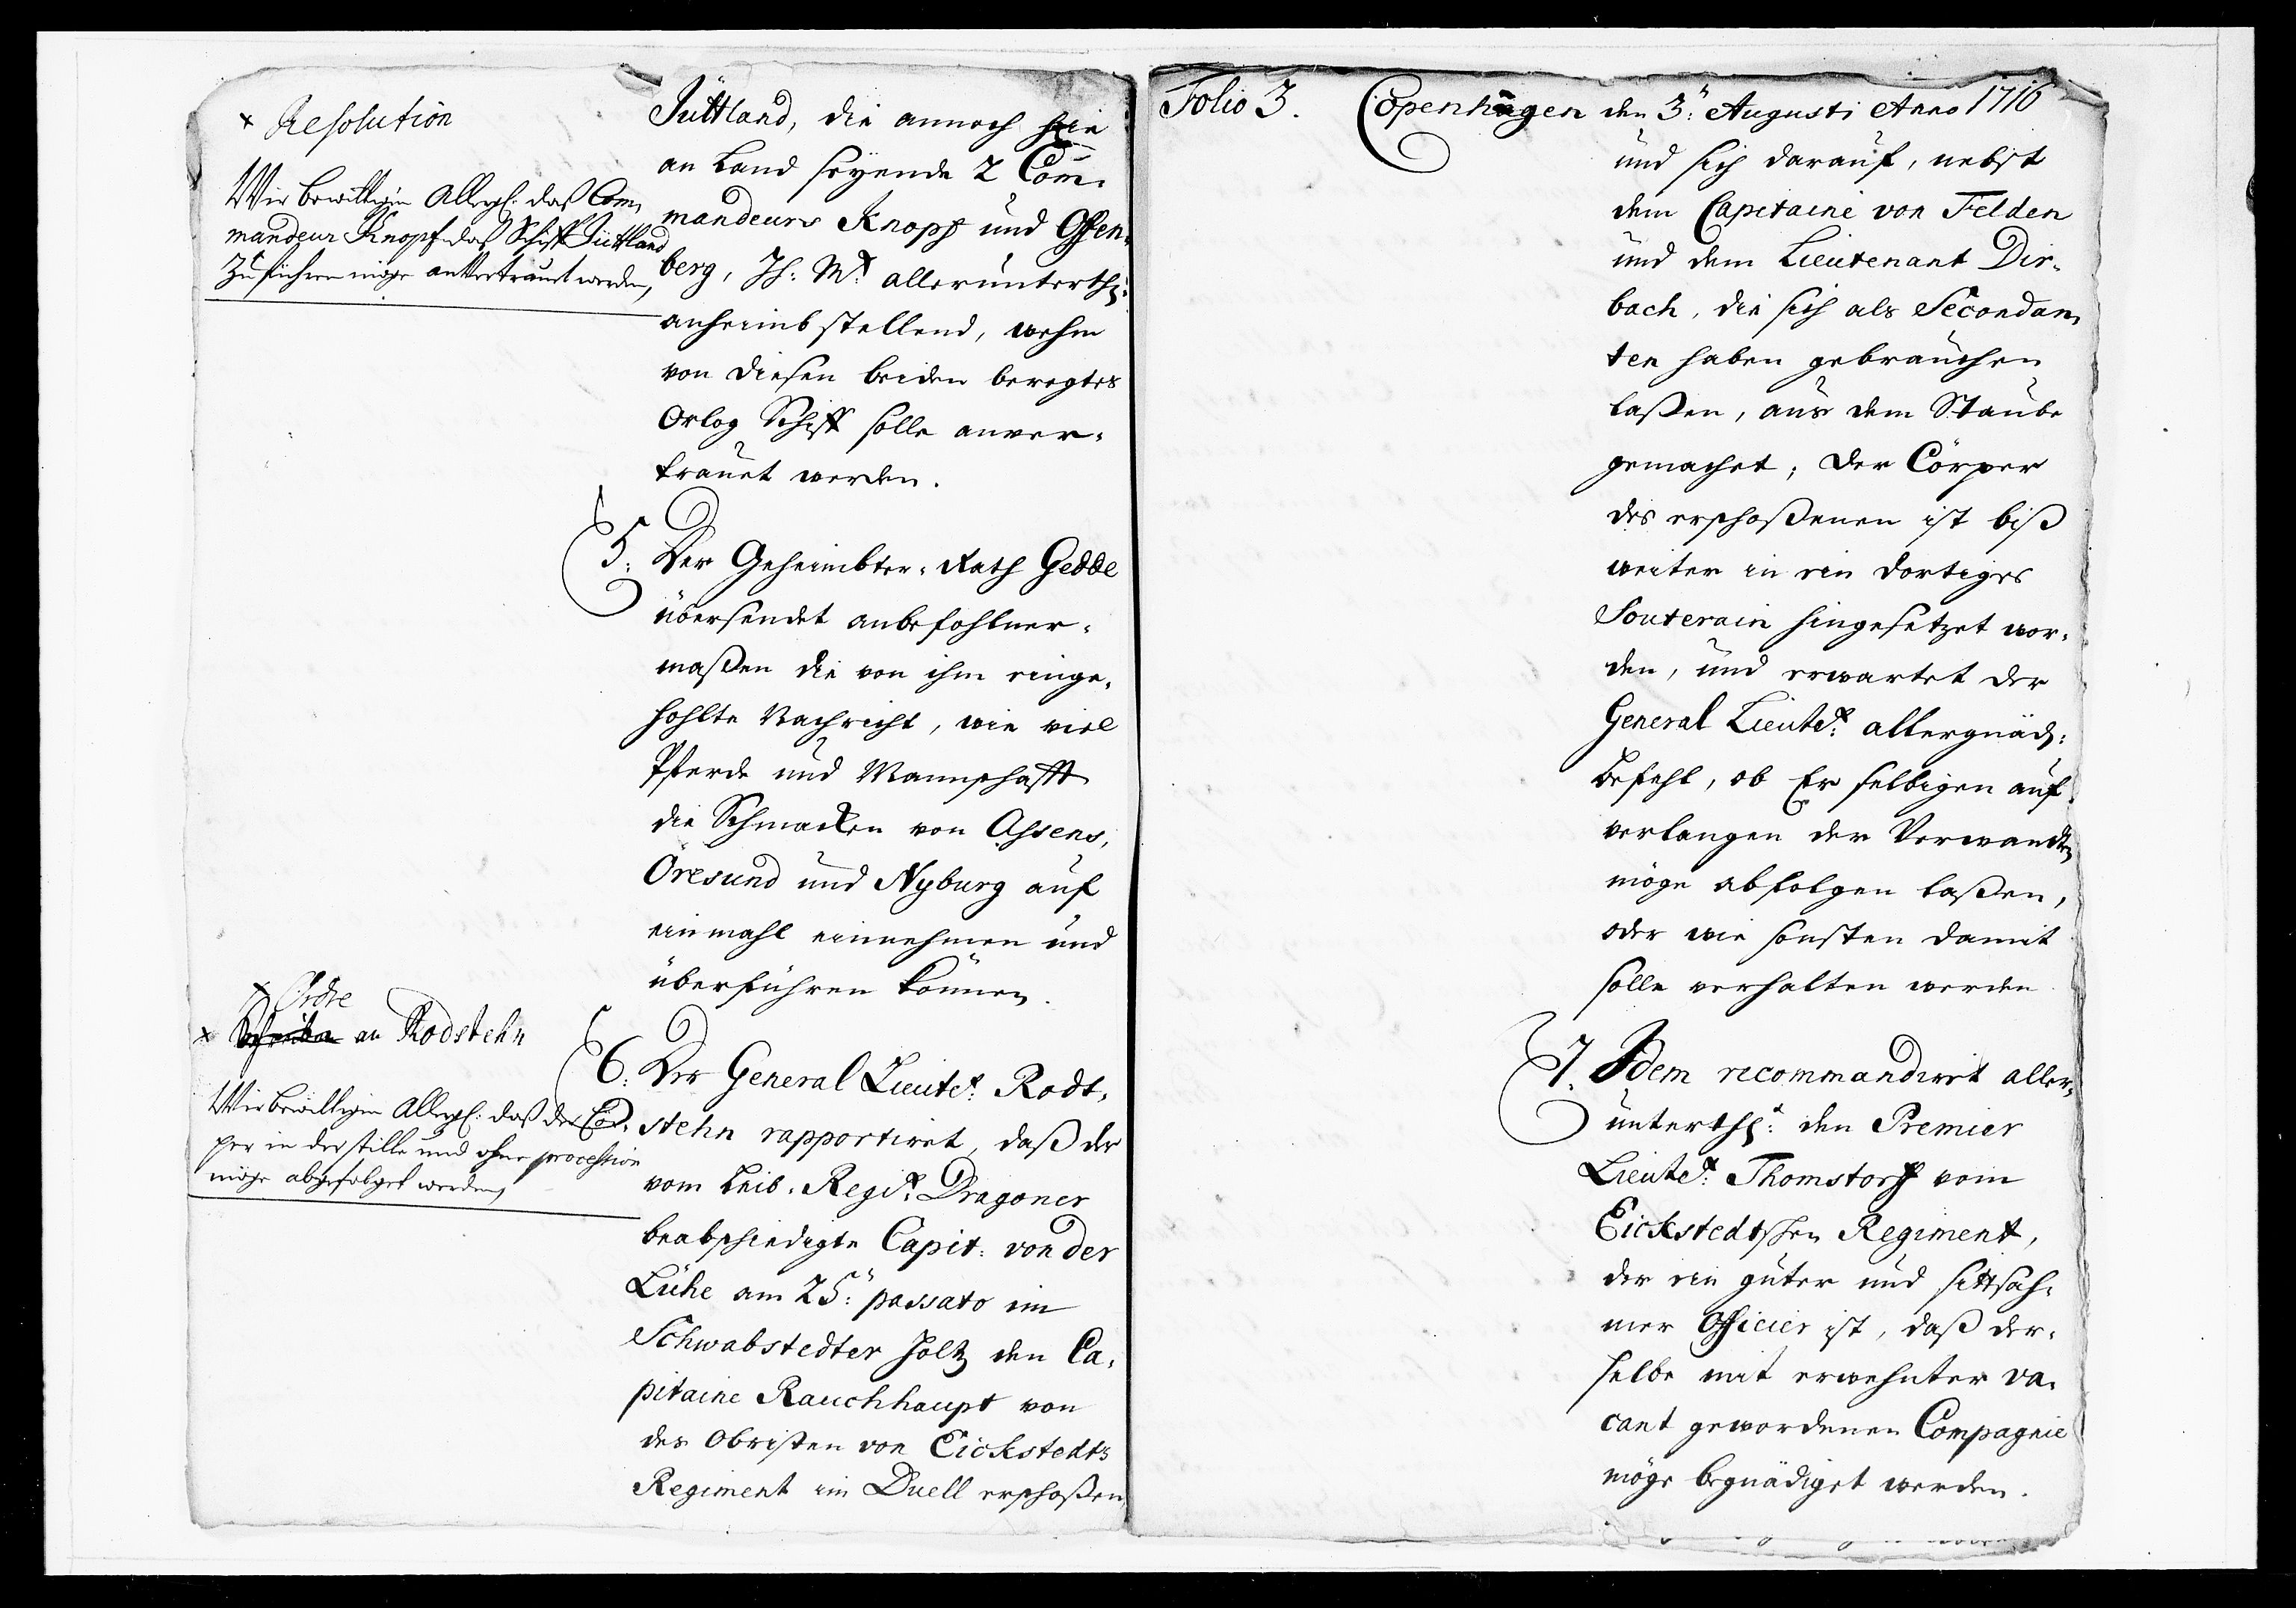 × Resolution
Wir bewilligen Allergl: daß Com-
mandeur Knopf das Schiff Jüttland
zu führen möge anvertrauet werden,
Jüttland, die annoch hie
an Land seyende 2 Com-
mandeurs Knopf und Ossen-
berg, Ih: Mt: allerunterthg:
anheimb stellend, wehm
von diesen beiden beregtes
Orlog Schiff solle anver-
trauet werden.
5. Der Geheimbter-Rath Gedde
übersendet anbefohlner-
maßen die von ihm einge-
hohlte Nachricht, wie viel
Pferde und Mannschafft
die Schmacken von Assens,
Öresund und Nyburg auf
einmahl einnehmen und
überführen können.
× Ordre
× an Rodstehn
Wir bewilligen Allergl: daß der Cör-
per in der stille und ohne procession
möge abgefolget werden,
6. Der General Lieutet: Rodt-
stehn rapportiret, daß der
vom Leib-Regit: Dragoner
beabschiedigte Capit: von der
Lühe am 25ten: passato im
Schwabstedter Holtz den Ca-
pitaine Rauchhaupt von
des Obristen von Eickstedts
Regiment im Duell erschoßen,
Folio 3. Copenhagen den 3ten: Augusti Anno 1716
und sich darauf, nebst
dem Capitaine von Felden
und dem Lieutenant Dir-
bach, die sich als Secondan-
ten haben gebrauchen
laßen, aus dem Staube
gemachet; Der Cörper
des erschoßenen ist biß
weiter in ein dortiges
Souterain hingesetzet wor-
den, und erwartet der
General Lieutet: allergnäd:
Befehl, ob Er selbigen auf
verlangen der Verwandten
möge abfolgen laßen,
oder wie sonsten damit
solle verhalten werden
7. Idem recommandiret aller-
unterthgst: den Premier
Lieutet: Thomstorff vom
Eickstedtschen Regiment,
der ein guter und sittsah-
mer Officier ist, daß der-
selbe mit erwehnter va-
cant gewordenen Compagnie
möge begnädiget werden.